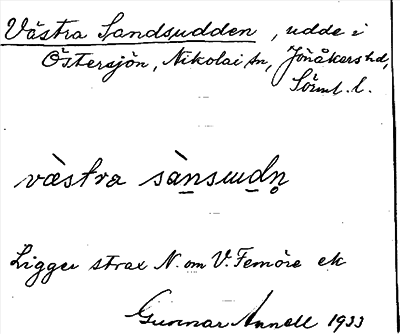 Västra Sandsudden, udde i
Östersjön, Nikolai sn, Jönåkers hd,
Söml. l.
västra sànsudn̥
Ligger strax N. om V. Femöre ek
Gunnar Annell 1933